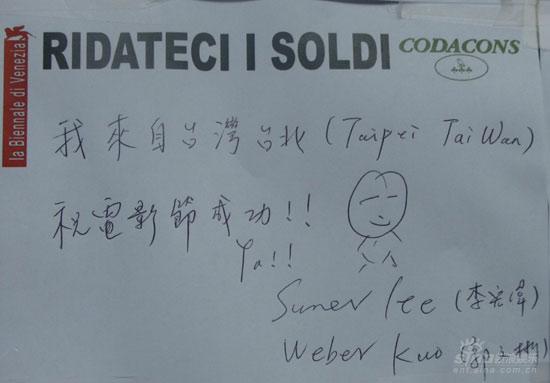 la Biennale di Venezia
RIDATECI I SOLDI
CODACONS
我來自台灣台北 (Taipei TaiWan)
祝電影節成功!!
Ya!!
Suner lee (李宏偉)
Weber Kuo
ent.sina.com.cn